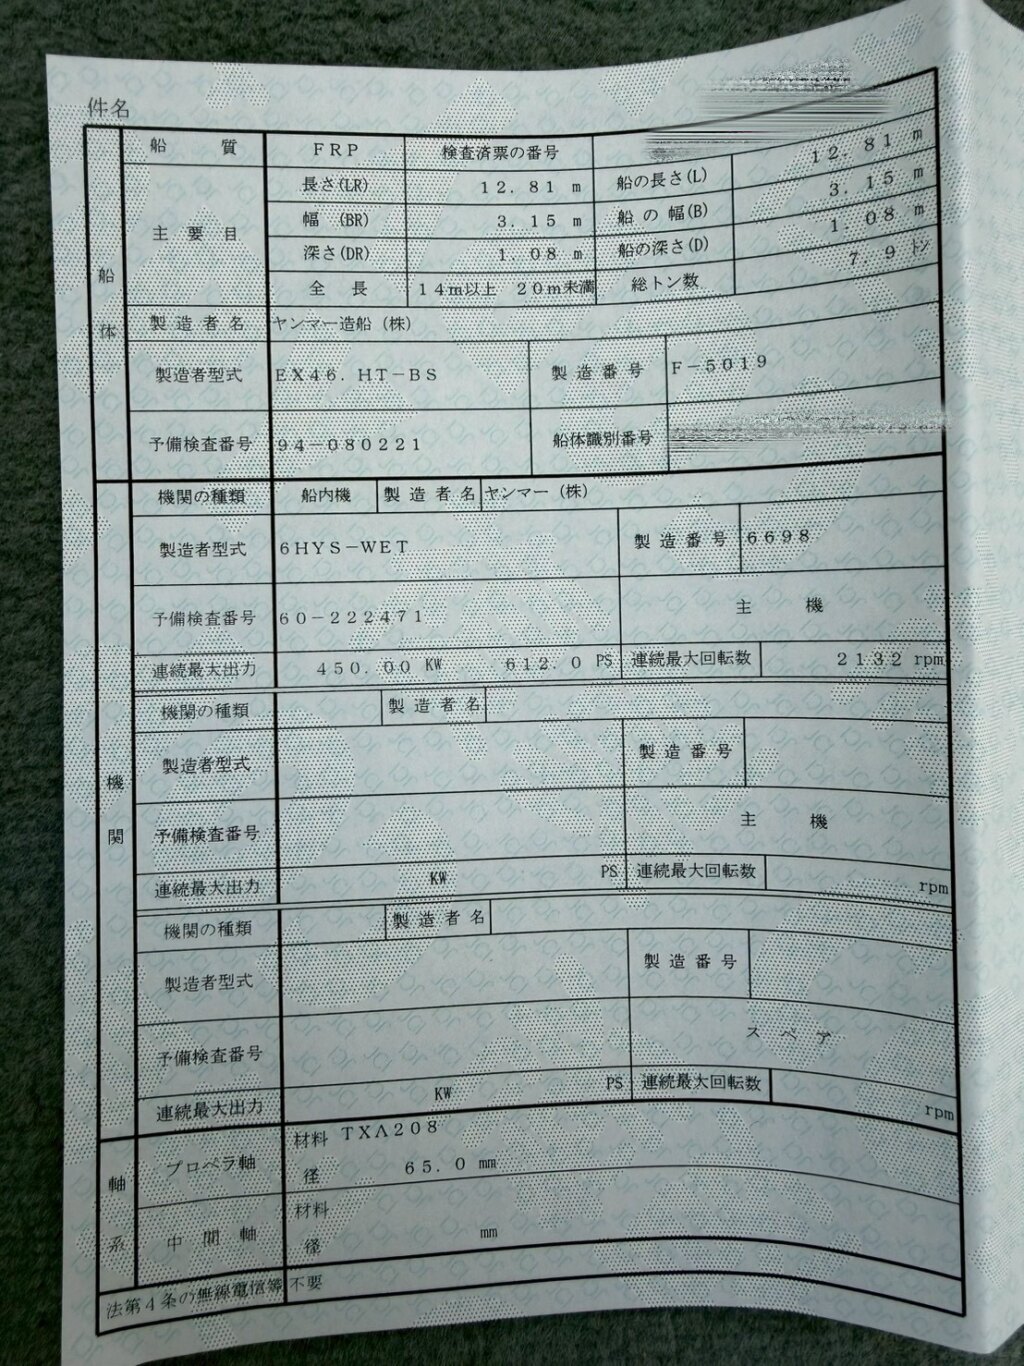 件名
船質 FRP 検査済票の番号
主要目 長さ(LR) 12.81 m 船の長さ(L) 12.81 m
幅 (BR) 3.15 m 船の幅(B) 3.15 m
深さ(DR) 1.08 m 船の深さ(D) 1.08 m
全長 14m以上 20m未満 総トン数 7.9トン
船体
製造者名 ヤンマー造船(株)
製造者型式 EX46.HT-BS 製造番号 F-5019
予備検査番号 94-080221 船体識別番号
機関の種類 船内機 製造者名 ヤンマー(株)
製造者型式 6HYS-WET 製造番号 6698
予備検査番号 60-222471 主機
連続最大出力 450.00 KW 612.0 PS 連続最大回転数 2132 rpm
機関の種類 製造者名
製造者型式 製造番号
機関
予備検査番号 主機
連続最大出力 KW PS 連続最大回転数 rpm
機関の種類 製造者名
製造者型式 製造番号
予備検査番号 スペア
連続最大出力 KW PS 連続最大回転数 rpm
軸系
プロペラ軸 材料 TXA208
径 65.0 mm
中間軸 材料
径 mm
法第4条の無線電信等 不要